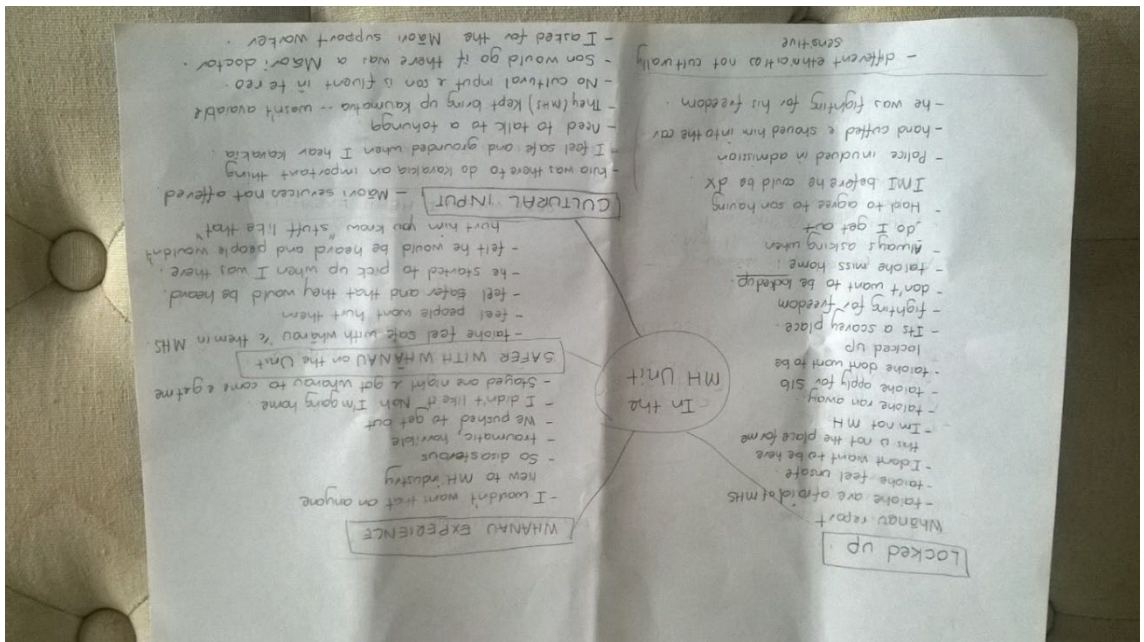 In the
MH Unit
LOCKED UP
Whānau report
- taiohe are afraid of MHS
- taiohe feel unsafe
- I dont want to be here
this is not the place for me
- Im not MH
- taiohe ran away.
- taiohe apply for S16
- taiohe dont want to be
locked up
- Its a scarey place.
fighting for freedom
- don't want to be lockedup.
- taiohe miss home
- Always asking when
do I get out
- Had to agree to son having
IMI before he could be dx
- Police involved in admission
- hand cuffed & shoved him into the car
- he was fighting for his freedom.
- different ethnicities not culturally
sensitive
WHĀNAU EXPERIENCE
- I wouldn't want that on anyone
new to MH industry
- So disasterous
- traumatic, horrible
- We pushed to get out
- I didn't like it "Nah I'm going home
- Stayed one night & got whānau to come & get me
SAFER WITH WHĀNAU on the Unit
- taiohe feel safe with whānau in MHS.
- feel people wont hurt them
- feel safer and that they would be heard.
- he started to pick up when I was there.
- felt he would be heard and people wouldn't
hurt him you know "stuff like that"
CULTURAL INPUT
- Māori services not offered
- was there to do karakia an important thing
- I feel safe and grounded when I hear karakia
- Need to talk to a tohunga
- They (MHS) kept bring up Kaumatua .. wasn't avaiable
- No cultural input & son is fluent in te reo.
- Son would go if there was a Māori doctor.
- I asked for the Māori support worker.